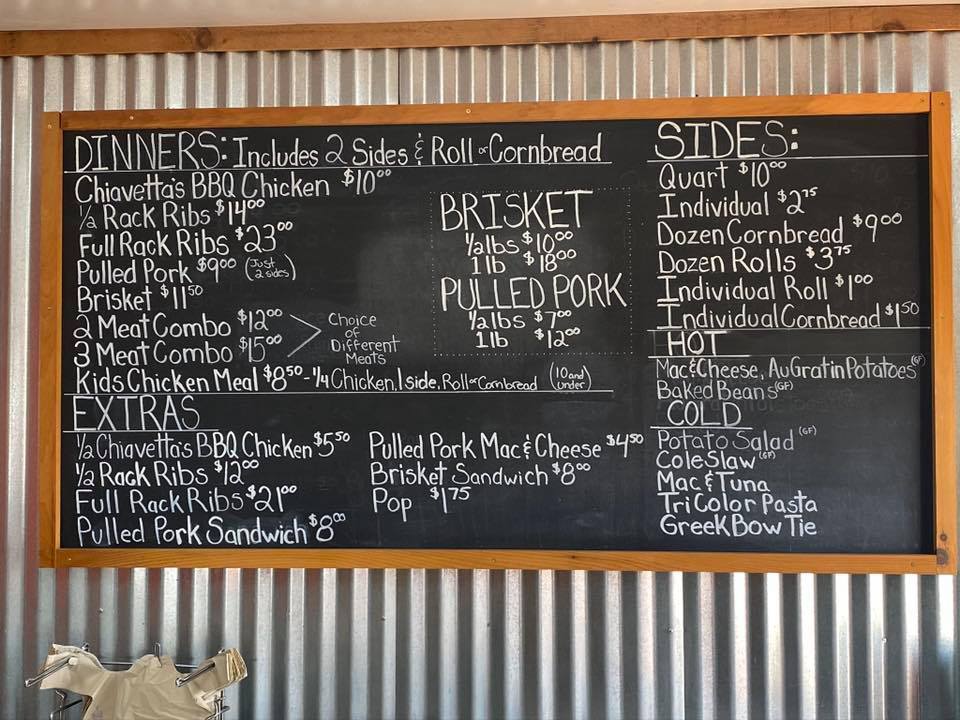 DINNERS: Includes 2 Sides & Roll or Cornbread
Chiavetta's BBQ Chicken $10.00
1/2 Rack Ribs $14.00
Full Rack Ribs $23.00
Pulled Pork $9.00 (Just 2 sides)
Brisket $11.50
2 Meat Combo $12.00
3 Meat Combo $15.00
Choice
of
Different
Meats
Kids Chicken Meal $8.50 - 1/4 Chicken, 1 side, Roll or Cornbread (10 and under)
BRISKET
1/2 lbs $10.00
1 lb $18.00
PULLED PORK
1/2 lbs $7.00
1 lb $12.00
EXTRAS
1/2 Chiavetta's BBQ Chicken $5.50
1/2 Rack Ribs $12.00
Full Rack Ribs $21.00
Pulled Pork Sandwich $8.00
Pulled Pork Mac & Cheese $4.50
Brisket Sandwich $8.00
Pop $1.75
SIDES:
Quart $10.00
Individual $2.75
Dozen Cornbread $9.00
Dozen Rolls $3.75
Individual Roll $1.00
Individual Cornbread $1.50
HOT
Mac & Cheese, Au Gratin Potatoes (GF)
Baked Beans (GF)
COLD
Potato Salad (GF)
Cole Slaw (GF)
Mac & Tuna
Tri Color Pasta
Greek Bow Tie